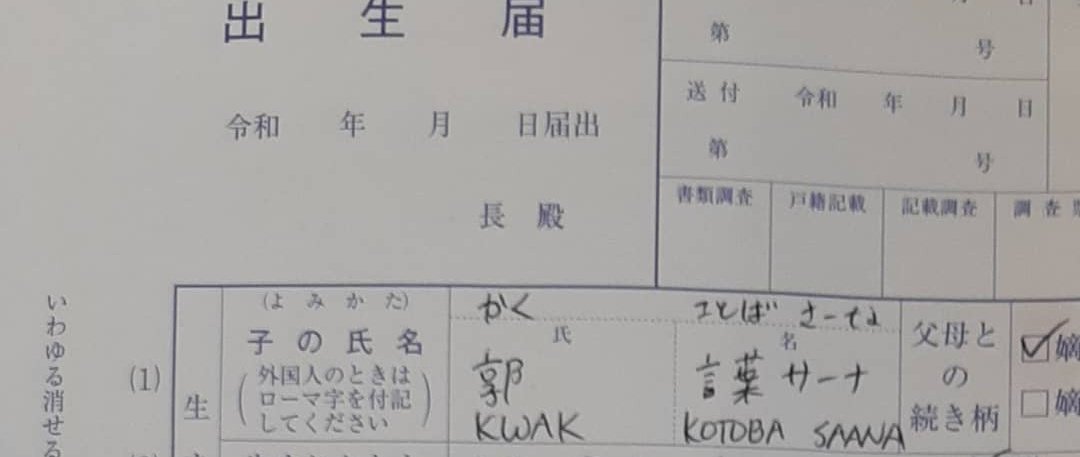 出生届
令和 年 月 日届出
長 殿
第 号
送付 令和 年 月 日
第 号
書類調査 戸籍記載 記載調査 調査
いわゆる消せる
(1)
生
(よみかた)
子の氏名
(外国人のときは
ローマ字を付記
してください)
かく ことば さーな
氏 名
郭 言葉 サーナ
KWAK KOTOBA SAANA
父母と
の
続き柄
☑嫡
□嫡